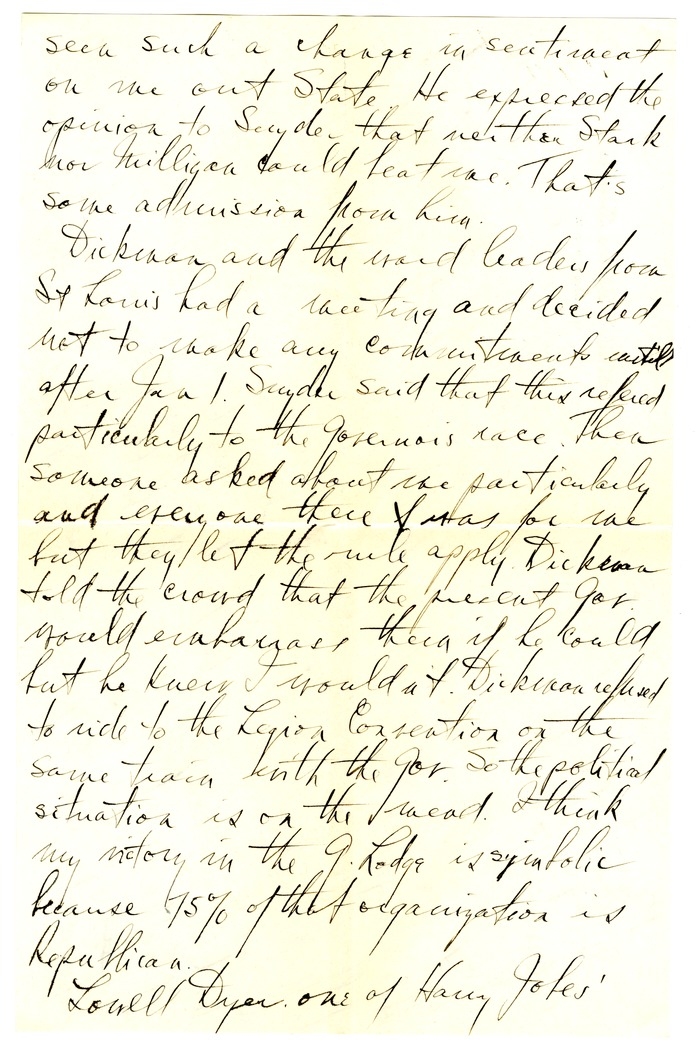 seen such a change in sentiment
on me out State. He expressed the
opinion to Snyder that neither Stark
nor Milligan could beat me. That's
some admission from him.
Dickman and the ward leaders from
St Louis had a meeting and decided
not to make any commitments until
after Jan 1. Snyder said that this refered
particularly to the Governois race. Then
someone asked about me particularly
and everyone there was for me
but they let the rule apply. Dickman
told the crowd that the present Gov.
would embarrass them if he could
but he knew I wouldn't. Dickman refused
to ride to the Legion Convention on the
same train with the Gov. So the political
situation is on the mend. I think
my victory in the G. Lodge is symbolic
because 75% of that organization is
Republican.
Lowell Dyer. one of Harry Jobes'